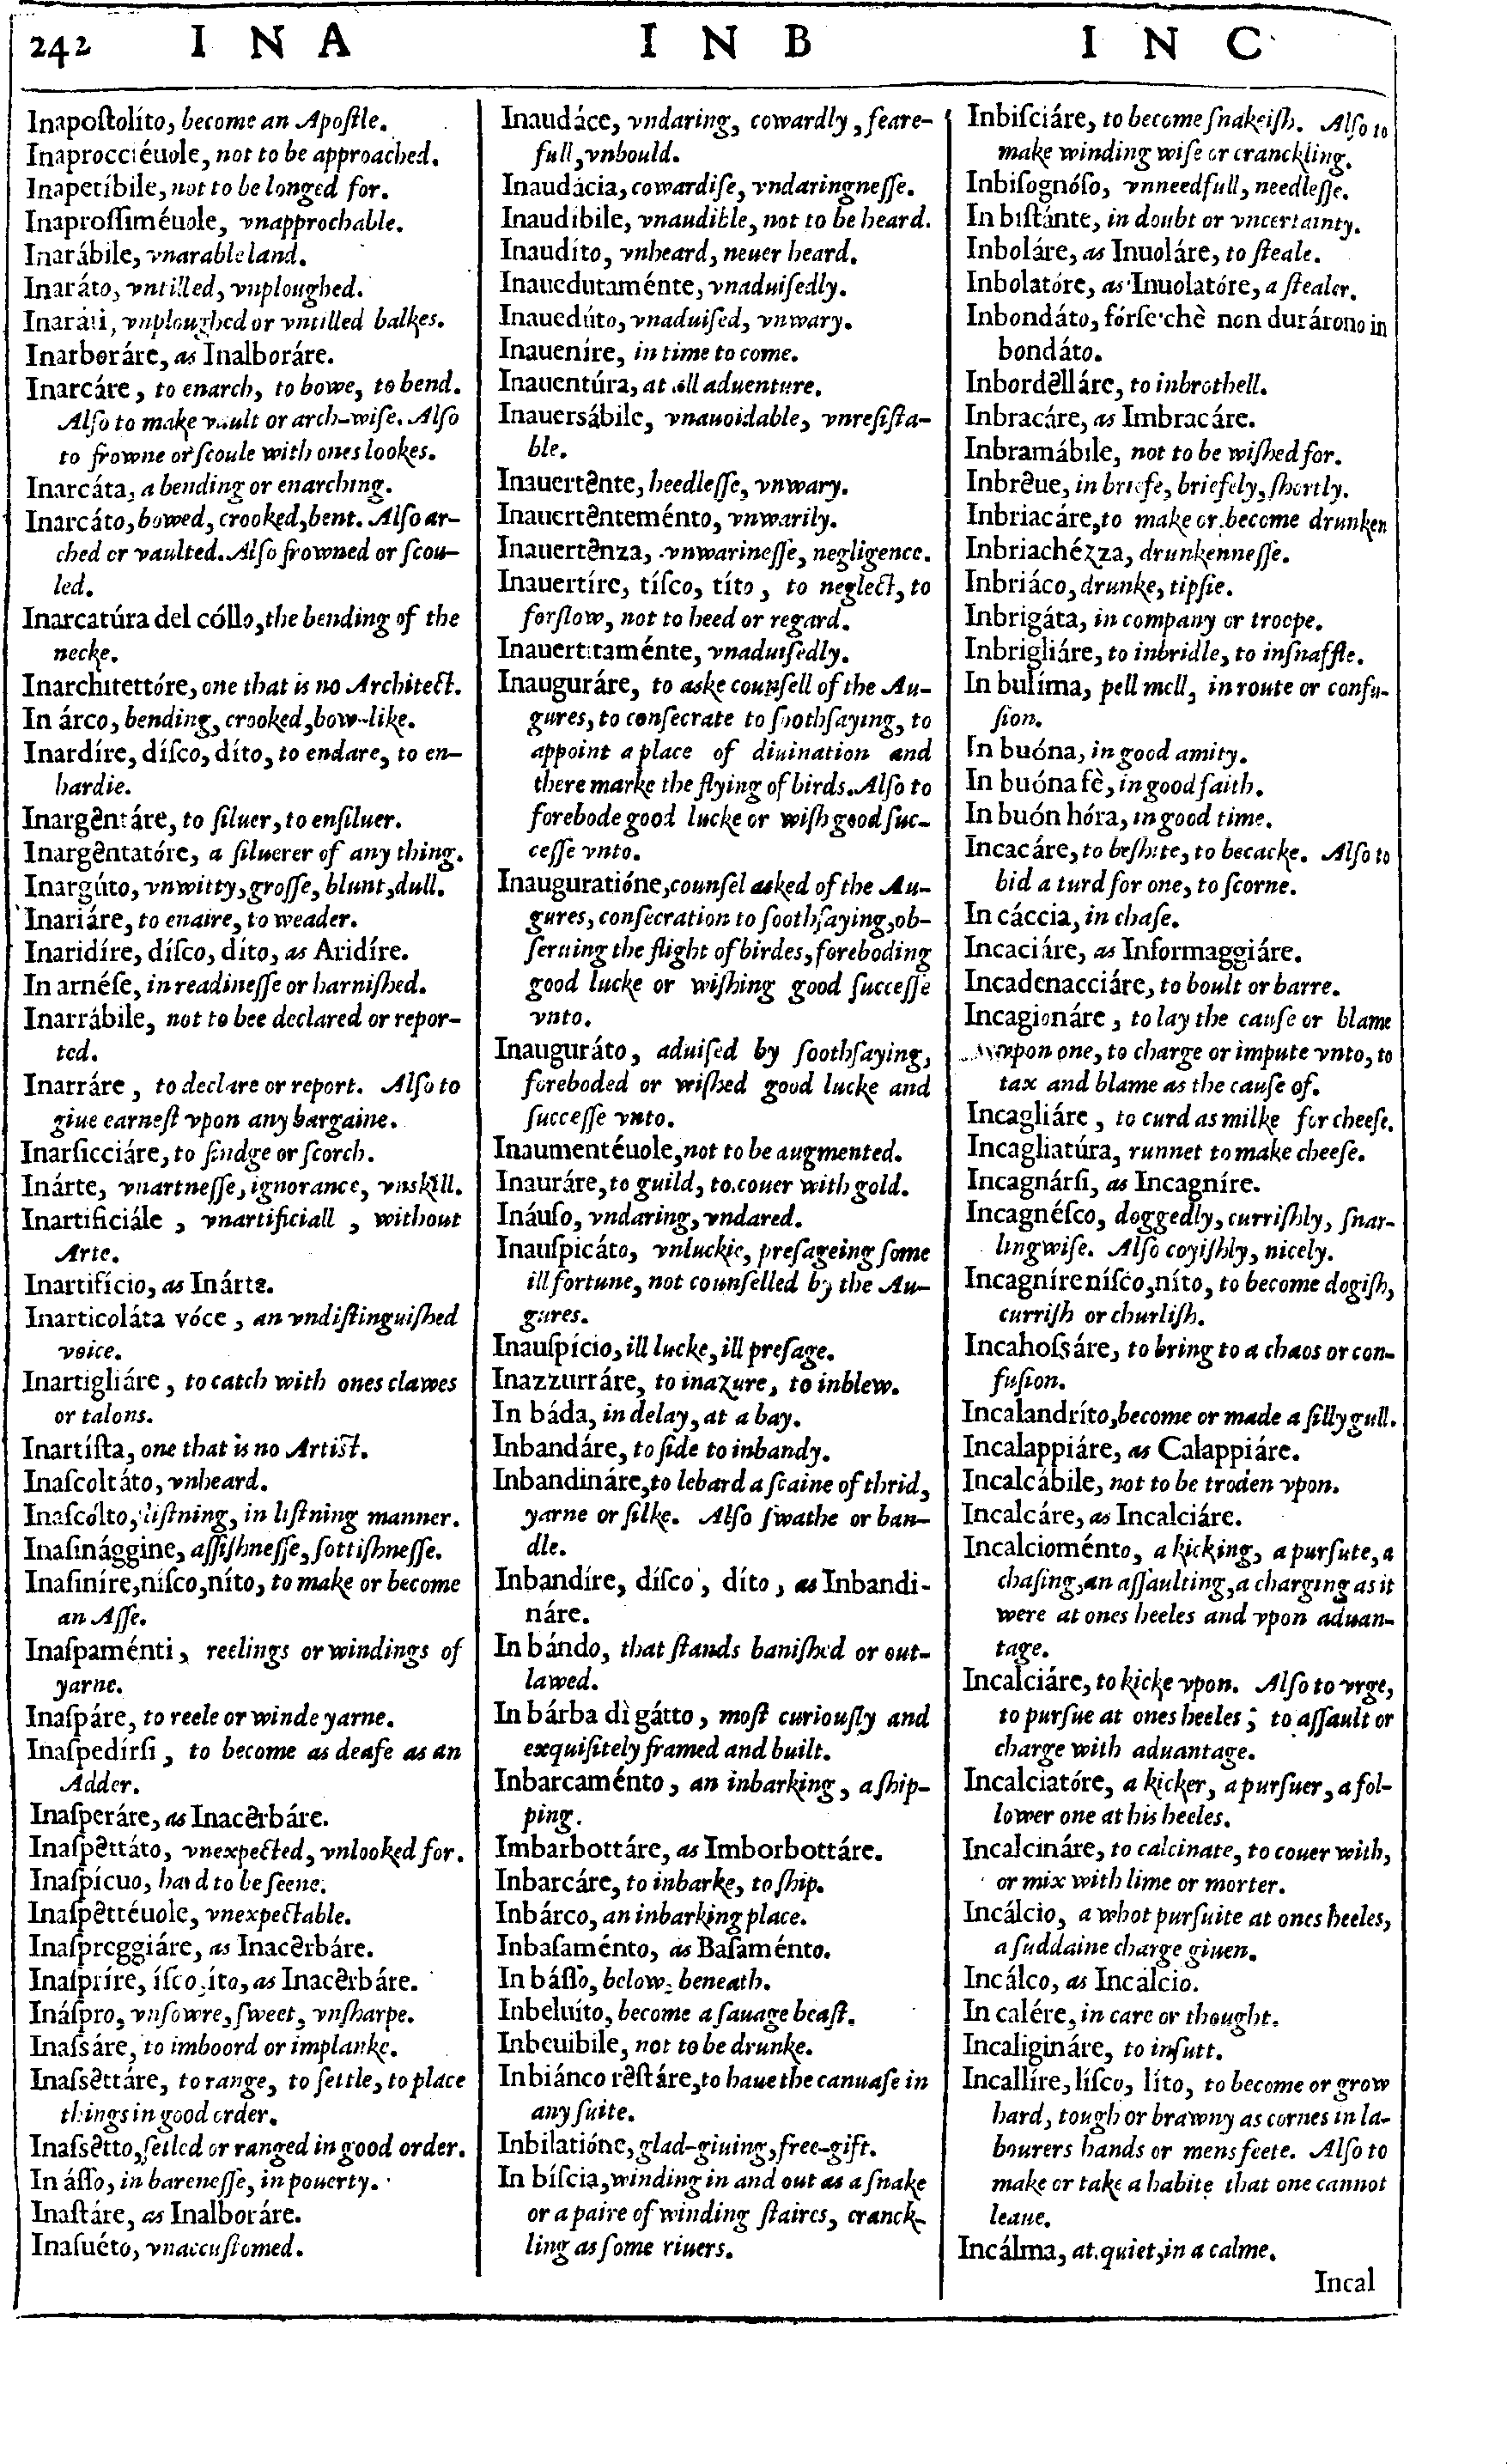 242 INA INB INC
Inapoſtolíto, become an Apoſtle.
Inaprocciéuole, not to be approached.
Inapetíbile, not to be longed for.
Inaproſſiméuole, vnapprochable.
Inarábile, vnarable land.
Inaráto, vntilled, vnploughed.
Inaráti, vnploughed or vntilled balkes.
Inarboráre, as Inalboráre.
Inarcáre, to enarch, to bowe, to bend.
Alſo to make vault or arch-wiſe. Alſo
to frowne or ſcoule with ones lookes.
Inarcáta, a bending or enarching.
Inarcáto, bowed, crooked, bent. Alſo ar-
ched or vaulted. Alſo frowned or ſcou-
led.
Inarcatúra del cóllo, the bending of the
necke.
Inarchitettóre, one that is no Architect.
In árco, bending, crooked, bow-like.
Inardíre, díſco, díto, to endare, to en-
hardie.
Inargêntáre, to ſiluer, to enſiluer.
Inargêntatóre, a ſiluerer of any thing.
Inargúto, vnwitty, groſſe, blunt, dull.
Inariáre, to enaire, to weader.
Inaridíre, díſco, díto, as Aridíre.
In arnéſe, in readineſſe or harniſhed.
Inarrábile, not to bee declared or repor-
ted.
Inarráre, to declare or report. Alſo to
giue earneſt vpon any bargaine.
Inarſicciáre, to ſindge or ſcorch.
Inárte, vnartneſſe, ignorance, vnskill.
Inartificiále, vnartificiall, without
Arte.
Inartifício, as Inárte.
Inarticoláta vóce, an vndiſtinguiſhed
voice.
Inartigliáre, to catch with ones clawes
or talons.
Inartíſta, one that is no Artiſt.
Inaſcoltáto, vnheard.
Inaſcólto, liſtning, in liſtning manner.
Inaſinággine, aſſiſhneſſe, ſottiſhneſſe.
Inaſiníre, níſco, níto, to make or become
an Aſſe.
Inaſpaménti, reelings or windings of
yarne.
Inaſpáre, to reele or winde yarne.
Inaſpedírſi, to become as deafe as an
Adder.
Inaſperáre, as Inacêrbáre.
Inaſpêttáto, vnexpected, vnlooked for.
Inaſpícuo, hard to be ſeene.
Inaſpêttéuole, vnexpectable.
Inaſpreggiáre, as Inacêrbáre.
Inaſpríre, íſco, íto, as Inacêrbáre.
Ináſpro, vnſowre, ſweet, vnſharpe.
Inaſsáre, to imboord or implanke.
Inaſsêttáre, to range, to ſettle, to place
things in good order.
Inaſsêtto, ſetled or ranged in good order.
In áſſo, in bareneſſe, in pouerty.
Inaſtáre, as Inalboráre.
Inaſuéto, vnaccuſtomed.
Inaudáce, vndaring, cowardly, feare-
full, vnbould.
Inaudácia, cowardiſe, vndaringneſſe.
Inaudíbile, vnaudible, not to be heard.
Inaudíto, vnheard, neuer heard.
Inauedutaménte, vnaduiſedly.
Inauedúto, vnaduiſed, vnwary.
Inaueníre, in time to come.
Inauentúra, at all aduenture.
Inauersábile, vnauoidable, vnreſiſta-
ble.
Inauertênte, heedleſſe, vnwary.
Inauertênteménto, vnwarily.
Inauertênza, vnwarineſſe, negligence.
Inauertíre, tíſco, títo, to neglect, to
forſlow, not to heed or regard.
Inauertitaménte, vnaduiſedly.
Inauguráre, to aske counſell of the Au-
gures, to conſecrate to ſoothſaying, to
appoint a place of diuination and
there marke the flying of birds. Alſo to
forebode good lucke or wiſh good ſuc-
ceſſe vnto.
Inauguratióne, counſel asked of the Au-
gures, conſecration to ſoothſaying, ob-
ſeruing the flight of birdes, foreboding
good lucke or wiſhing good ſucceſſe
vnto.
Inauguráto, aduiſed by ſoothſaying,
foreboded or wiſhed good lucke and
ſucceſſe vnto.
Inaumentéuole, not to be augmented.
Inauráre, to guild, to couer with gold.
Ináuſo, vndaring, vndared.
Inauſpicáto, vnluckie, preſageing ſome
ill fortune, not counſelled by the Au-
gures.
Inauſpício, ill lucke, ill preſage.
Inazzurráre, to inazure, to inblew.
In báda, in delay, at a bay.
Inbandáre, to ſide to inbandy.
Inbandináre, to lebard a ſcaine of thrid,
yarne or ſilke. Alſo ſwathe or ban-
dle.
Inbandíre, díſco, díto, as Inbandi-
náre.
In bándo, that ſtands baniſhed or out-
lawed.
In bárba dì gátto, moſt curiouſly and
exquiſitely framed and built.
Inbarcaménto, an inbarking, a ſhip-
ping.
Imbarbottáre, as Imborbottáre.
Inbarcáre, to inbarke, to ſhip.
Inbárco, an inbarking place.
Inbaſaménto, as Baſaménto.
In báſſo, below, beneath.
Inbeluíto, become a ſauage beaſt.
Inbeuibile, not to be drunke.
Inbiánco rêſtáre, to haue the canuaſe in
any ſuite.
Inbilatióne, glad-giuing, free-gift.
In bíſcia, winding in and out as a ſnake
or a paire of winding ſtaires, cranck-
ling as ſome riuers.
Inbiſciáre, to become ſnakeiſh. Alſo to
make winding wiſe or cranckling.
Inbiſognóſo, vnneedfull, needleſſe.
In biſtánte, in doubt or vncertainty.
Inboláre, as Inuoláre, to ſteale.
Inbolatóre, as Inuolatóre, a ſtealer.
Inbondáto, fórſe chè non durárono in
bondáto.
Inbordêlláre, to inbrothell.
Inbracáre, as Imbracáre.
Inbramábile, not to be wiſhed for.
Inbrêue, in briefe, briefely, ſhortly.
Inbriacáre, to make or become drunken
Inbriachézza, drunkenneſſe.
Inbriáco, drunke, tipſie.
Inbrigáta, in company or troope.
Inbrigliáre, to inbridle, to inſnaffle.
In bulíma, pell mell, in route or confu-
ſion.
In buóna, in good amity.
In buóna fè, in good faith.
In buón hóra, in good time.
Incacáre, to beſhite, to becacke. Alſo to
bid a turd for one, to ſcorne.
In cáccia, in chaſe.
Incaciáre, as Informaggiáre.
Incadenacciáre, to boult or barre.
Incagionáre, to lay the cauſe or blame
vpon one, to charge or impute vnto, to
tax and blame as the cauſe of.
Incagliáre, to curd as milke for cheeſe.
Incagliatúra, runnet to make cheeſe.
Incagnárſi, as Incagníre.
Incagnéſco, doggedly, curriſhly, ſnar-
lingwiſe. Alſo coyiſhly, nicely.
Incagníre níſco, níto, to become dogiſh,
curriſh or churliſh.
Incahoſsáre, to bring to a chaos or con-
fuſion.
Incalandríto, become or made a ſilly gull.
Incalappiáre, as Calappiáre.
Incalcábile, not to be troden vpon.
Incalcáre, as Incalciáre.
Incalcioménto, a kicking, a purſute, a
chaſing, an aſſaulting, a charging as it
were at ones heeles and vpon aduan-
tage.
Incalciáre, to kicke vpon. Alſo to vrge,
to purſue at ones heeles; to aſſault or
charge with aduantage.
Incalciatóre, a kicker, a purſuer, a fol-
lower one at his heeles.
Incalcináre, to calcinate, to couer with,
or mix with lime or morter.
Incálcio, a whot purſuite at ones heeles,
a ſuddaine charge giuen.
Incálco, as Incálcio.
In calére, in care or thought.
Incaligináre, to inſutt.
Incallíre, líſco, líto, to become or grow
hard, tough or brawny as cornes in la-
bourers hands or mens feete. Alſo to
make or take a habite that one cannot
leaue.
Incálma, at quiet, in a calme.
Incal